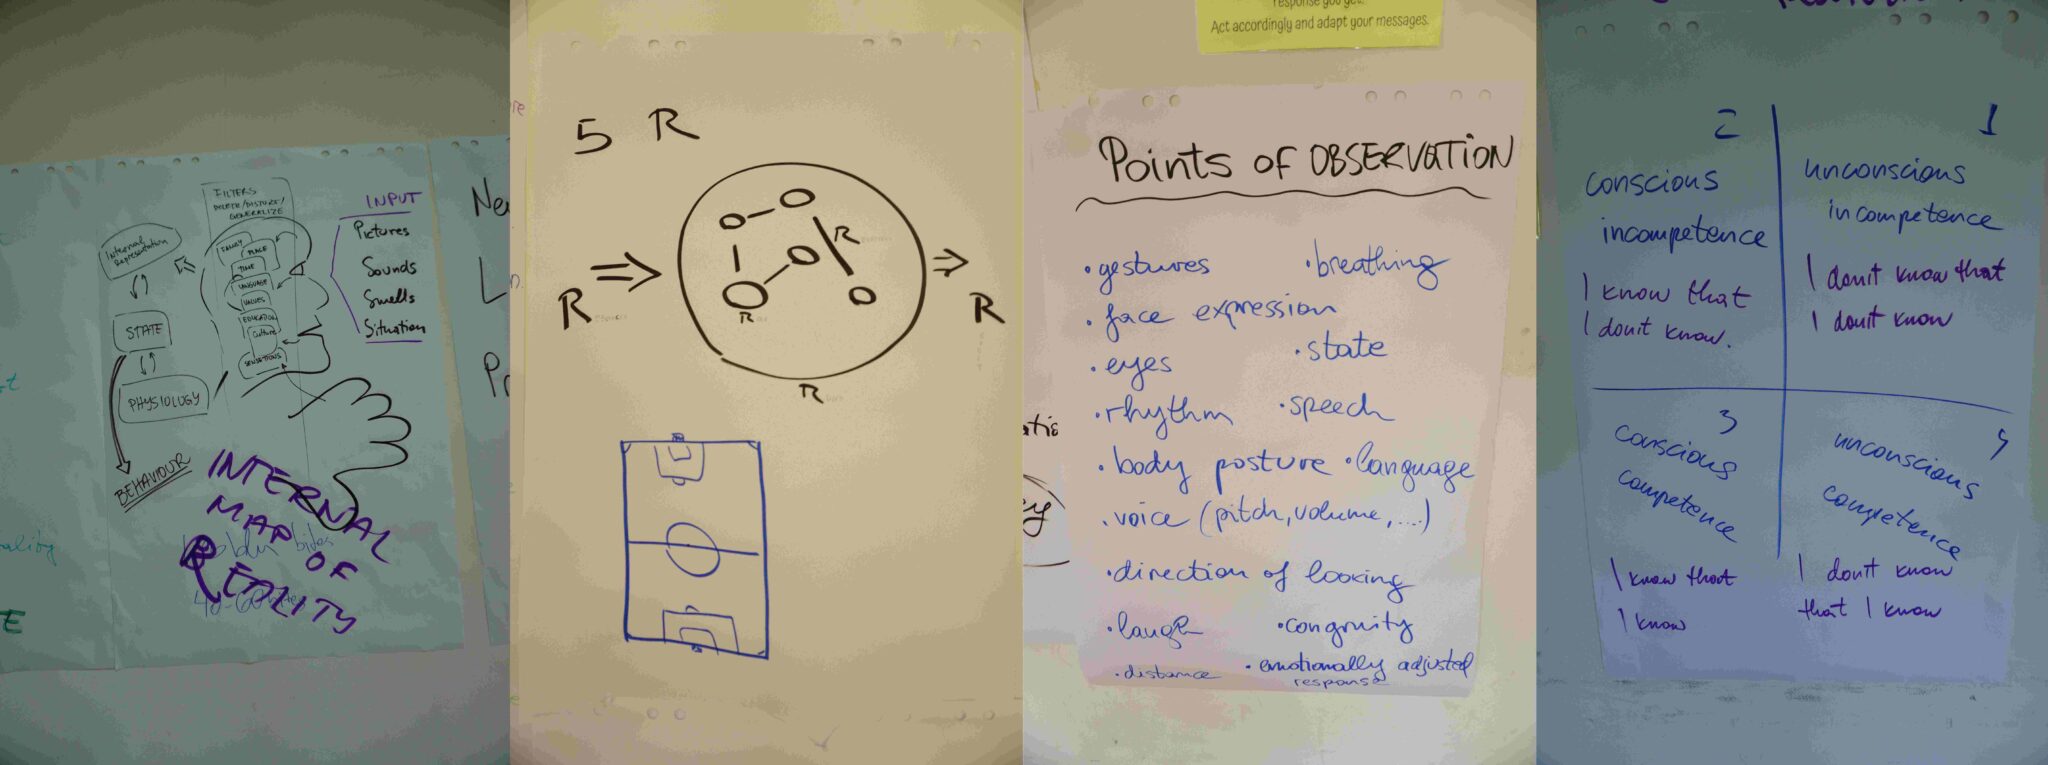 FILTERS
DELETE/DISTORT/
GENERALIZE
INPUT
Pictures
Sounds
Smells
Situation
Internal
Representation
FAMILY
PLACE
TIME
LANGUAGE
VALUES
EDUCATION
Culture
SENSATIONS
STATE
PHYSIOLOGY
BEHAVIOUR
INTERNAL
MAP OF
REALITY
5 R
R
R
R
R
R
response you get.
Act accordingly and adapt your messages.
Points of OBSERVATION
• gestures
• breathing
• face expression
• state
• eyes
• rhythm
• speech
• body posture
• language
• voice (pitch, volume, ....)
• direction of looking
• laugh
• congruity
• distance
• emotionally adjusted
response
2
conscious
incompetence
I know that
I don't know.
1
unconscious
incompetence
I don't know that
I don't know
3
conscious
competence
I know that
I know
4
unconscious
competence
I don't know
that I know